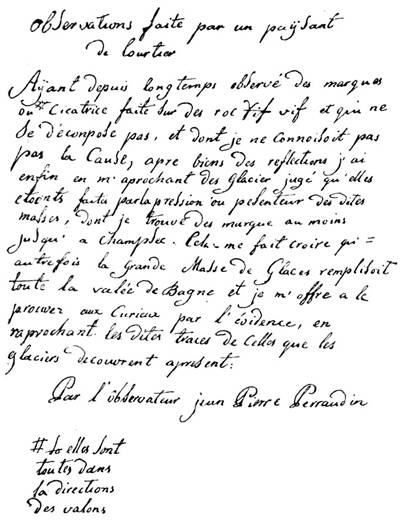 Observations faite par un paÿsant
de lourtier
Aÿant depuis longtemps observé des marques
ou Cicatrice faite sur des roc vif vif et qui ne
se d'econpose pas, et dont je ne connoisoit pas
pas la Cause, apre biens des reflections j'ai
enfin en m'aprochant des Glacier jugé qu'elles
etoents faites par la pression ou pesenteur des dites
masses, dont je trouve des marque au moins
jusqu'a champsec. Cela me fait croire qu'=
autrefois la Grande Masse de Glaces remplisoit
toute la valée de Bagne et je m'offre a le
prouver aux Curieux par l'évidence, en
raprochant les dites traces de Celles que les
glaciers decouvrent apresent:
Par l'observateur jean Pierre Perraudin
# elles sont
toutes dans
la directions
des valons